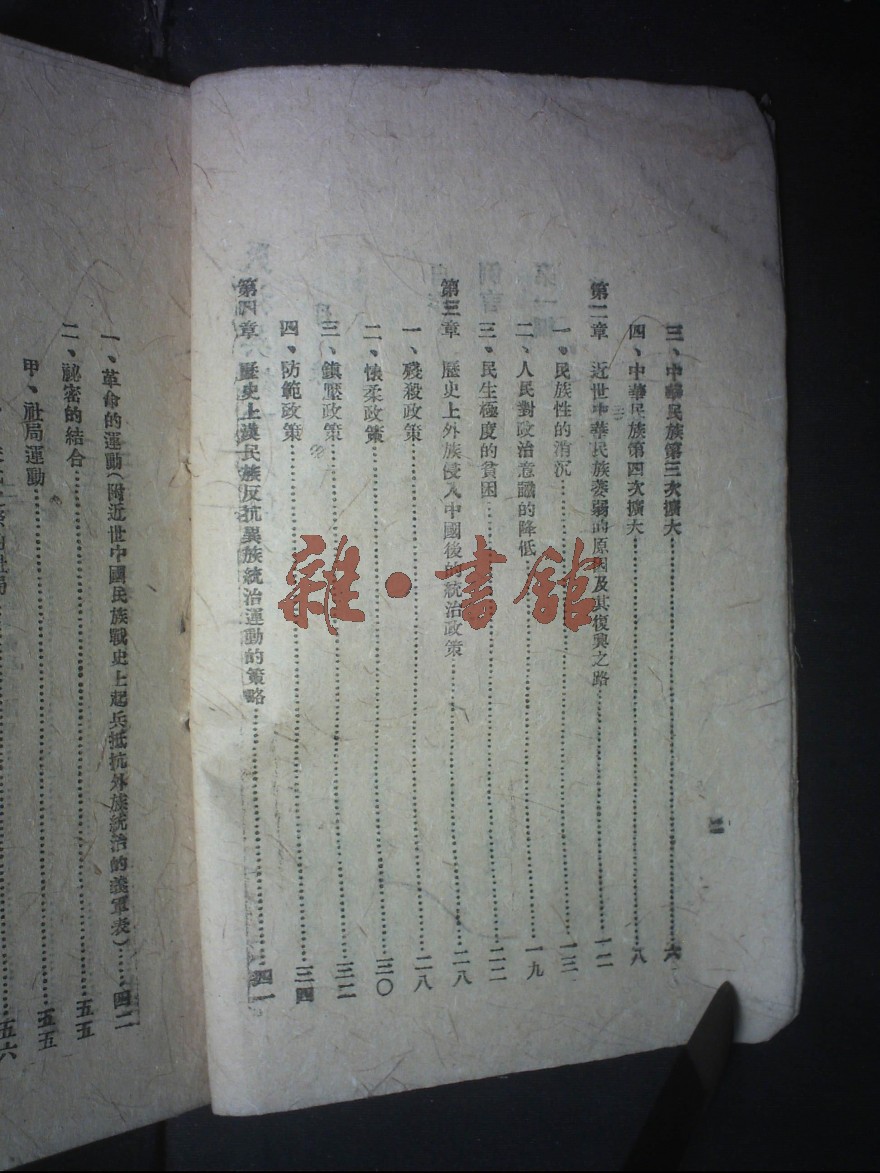 三、中華民族第三次擴大……六
四、中華民族第四次擴大……八
第二章　近世中華民族萎弱的原因及其復興之路……一二
一、民族性的消沉……一三
二、人民對政治意識的降低……一九
三、民生極度的貧困……二二
第三章　歷史上外族侵入中國後的統治政策……二八
一、殘殺政策……二八
二、懷柔政策……三〇
三、鎮壓政策……三二
四、防範政策……三四
第四章　歷史上漢民族反抗異族統治運動的策略……四一
一、革命的運動(附近世中國民族戰史上起兵抵抗外族統治的義軍表)……四二
二、祕密的結合……五五
甲、社局運動……五五
社局……五六
雜·書館